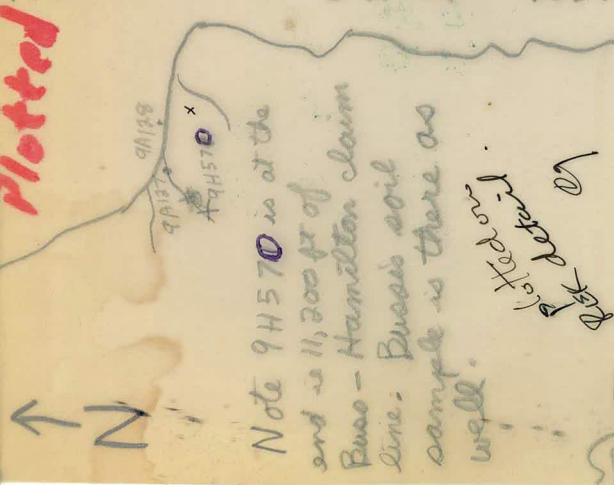 Plotted
9A128
9A127
9H570
Note 9H570 is at the
end ie 11,200 ft of
Buss - Hamilton claim
line. Bussis soil
sample is there as
well.
plotted on
detail
N